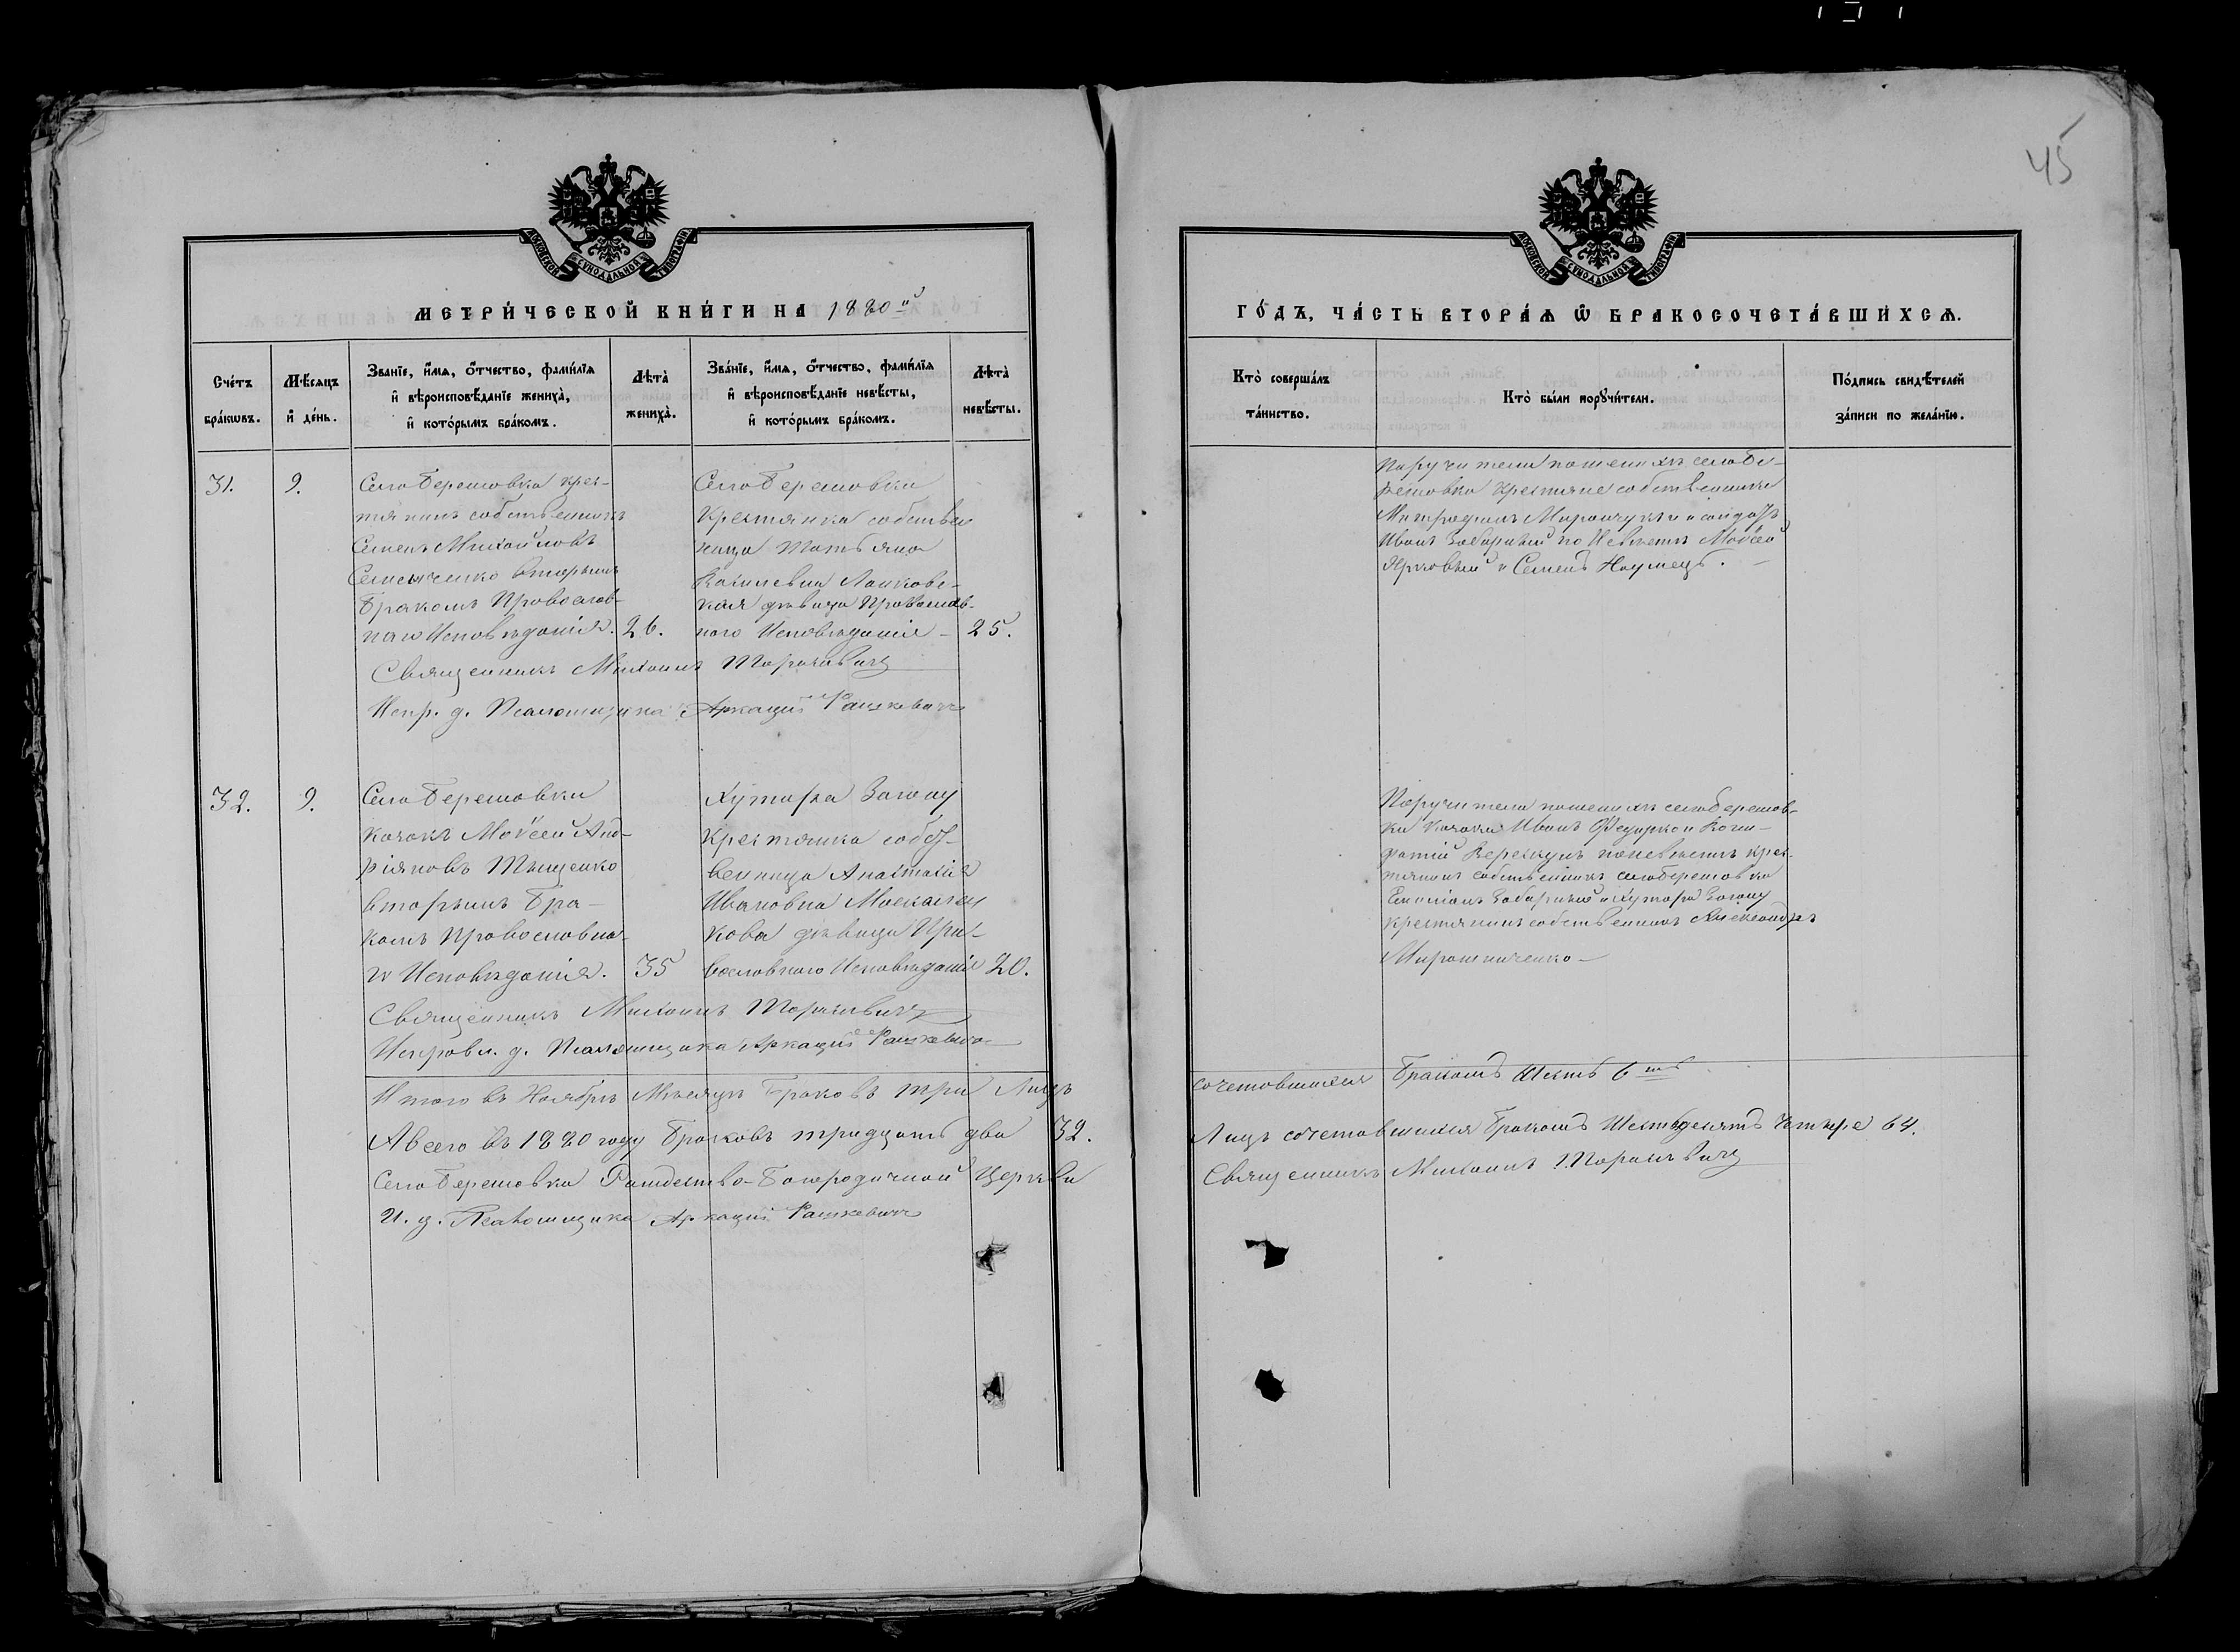 45
МОСКОВСКОЙ СѴНОДАЛЬНОЙ ТИПОГРАФІИ
МЕТРИ́ЧЕСКОЙ КНИ́ГИ НА 1880й
Сче́тъ бра́кѡвъ.
Мѣ́сяцъ и де́нь.
Зва́нїе, и́мѧ, ѻ́тчество, фами́лїѧ и҆ вѣроисповѣ́данїе жениха̀, и҆ кото́рымъ бра́комъ.
Лѣта̀ жениха̀.
Зва́нїе, и́мѧ, ѻ́тчество, фами́лїѧ и҆ вѣроисповѣ́данїе невѣ́сты, и҆ кото́рымъ бра́комъ.
Лѣта̀ невѣ́сты.
31.
9.
Села Берешовки крес-
тянинъ собственникъ
Семенъ Михайловъ
Семенченко вторымъ
Бракомъ Православ-
наго Исповѣданія.
26.
Села Берешовки
Крестянка собствен
ница Татьяна
Василевна
кая дѣвица Православ-
наго Исповѣданія
25.
Священникъ Михаилъ
Испр. д. Псаломщика Аркадій Рашкевичъ
32.
9.
Села Берешовки
Козакъ Мойсей Анд-
ріяновъ Тищенко
вторымъ Бра-
комъ Православна-
го Исповѣданія.
35
Хутора
крестянка собст-
венница Анастасія
Ивановна
кова дѣвица Пра-
вославного Исповѣданія
20.
Священникъ Михаилъ
Исправл. д. Псаломщика Аркадій Рашкевичъ
Итого въ Ноябрѣ Мѣсяцѣ Браковъ три Лицъ
А всего въ 1880 году Браковъ тридцать два 32.
Села Берешовки Рождество-Богородичной Церкви
И. д. Псаломщика Аркадій Рашкевичъ
МОСКОВСКОЙ СѴНОДАЛЬНОЙ ТИПОГРАФІИ
ГО́ДЪ, ЧА́СТЬ ВТОРА́Ѧ Ѡ҆ БРАКОСОЧЕТА́ВШИХСѦ.
Кто̀ соверша́лъ та́инство.
Кто̀ бы́ли порꙋчи́тели.
По́дпись свидѣ́телей за́писи по жела́нїю.
Поручители по женихѣ села Бе-
решовки крестяне собственники
Митрофанъ
Иванъ Забарный по Невѣстѣ Мойсей
и Семенъ Наумецъ.
Поручители по женихѣ села Берешов-
ки Козаки Иванъ Федирко и
по невѣстѣ крес-
тянинъ собственникъ села Берешовки
Забарный и Хутора
крестянинъ собственникъ Александръ
Мирошниченко
сочетовшихся Бракомъ Шесть 6ть
Лицъ сочетовшихся Бракомъ Шестьдесятъ Четыре 64.
Священникъ Михаилъ